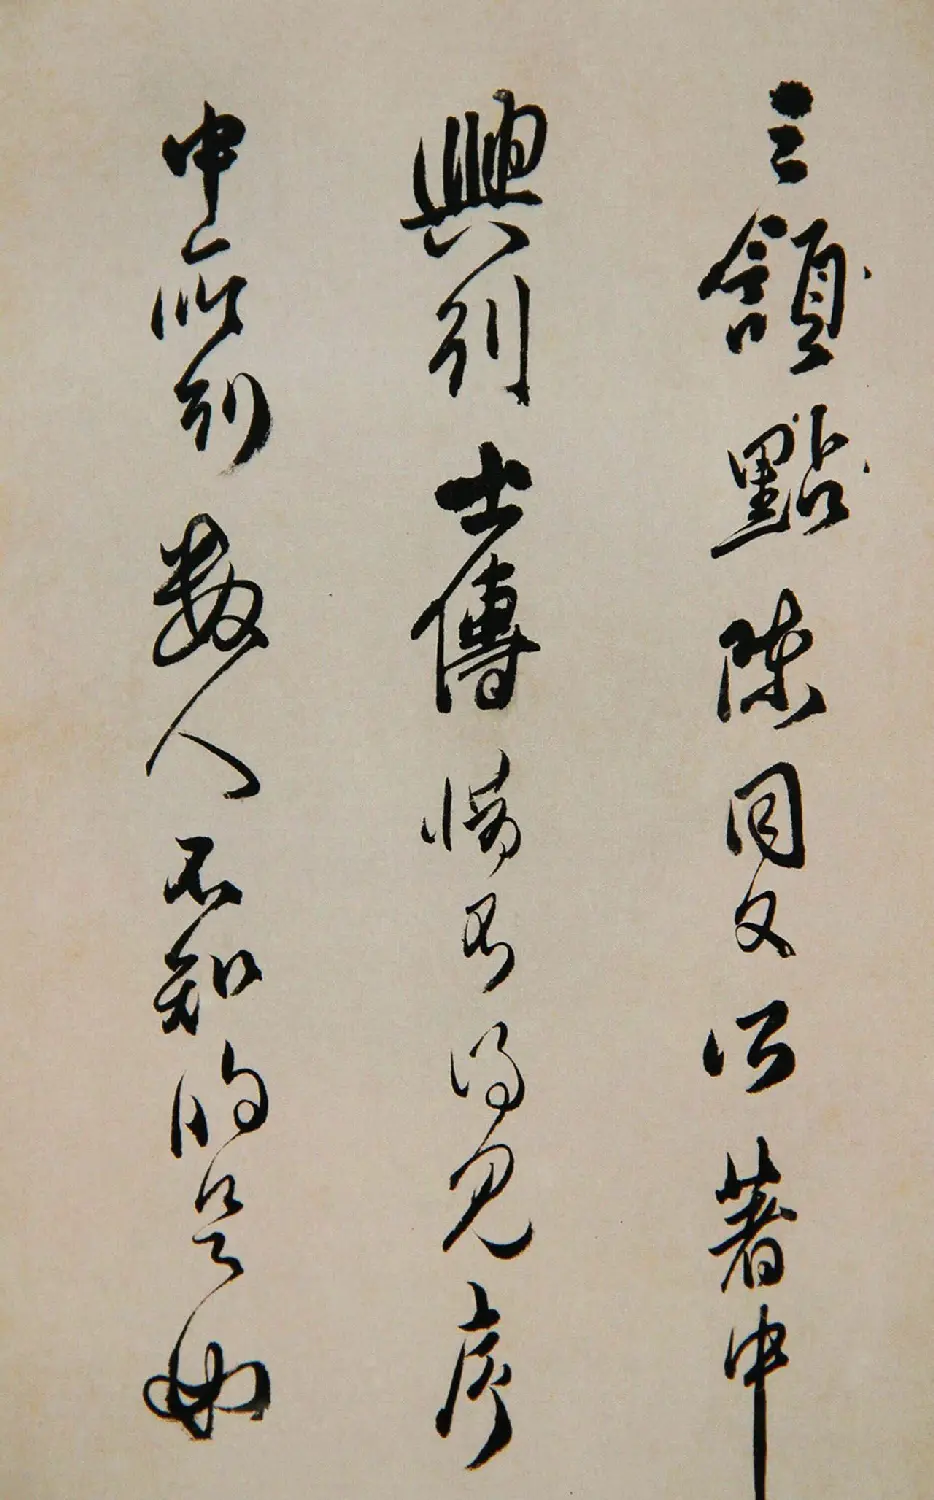 三頷點陳同父所著中
興列士傳惜得見序
中所列數人不知的是如